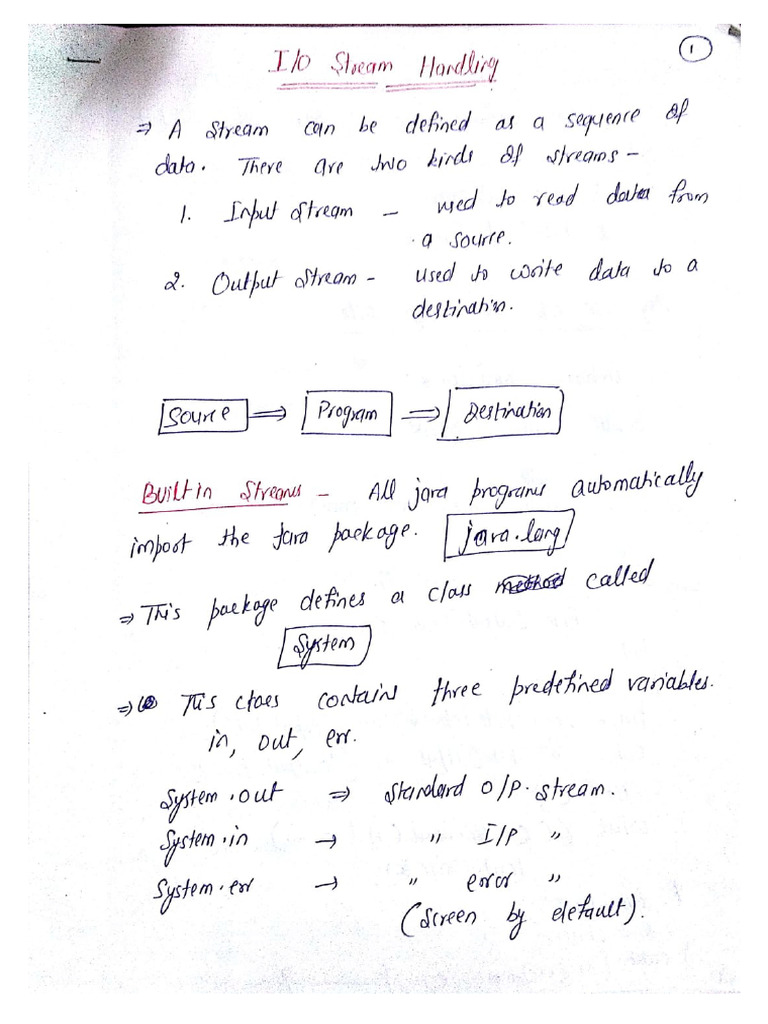 1
I/O Stream Handling
⇒ A stream can be defined as a sequence of
data. There are two kinds of streams -
1. Input stream - used to read data from
a source.
2. Output stream - used to write data to a
destination.
Source ⇒ Program ⇒ Destination
Builtin Streams - All java programs automatically
import the Java package. java.lang
⇒ This package defines a class called
System
⇒ This class contains three predefined variables.
in, out, err.
System.out ⇒ Standard O/P. stream.
System.in → " I/P "
System.err → " error "
(Screen by default).